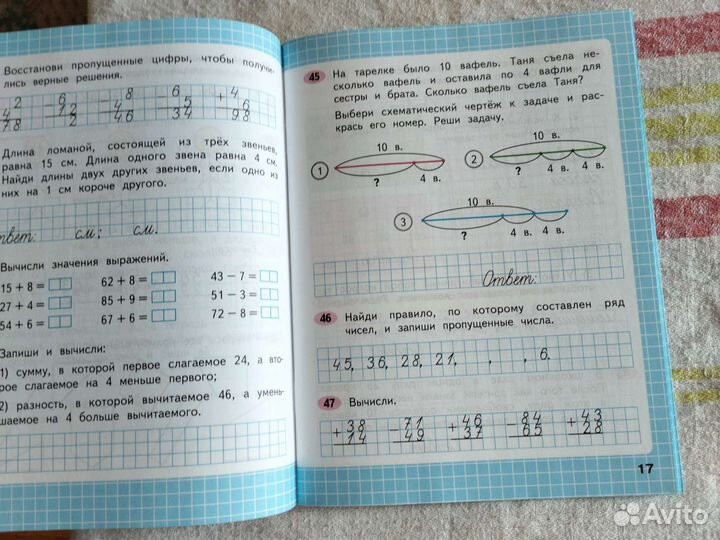 Восстанови пропущенные цифры, чтобы получи-
лись верные решения.
2 - 6 - 8 - 6 + 4
4 12 4 5 6
78 2 46 34 98
Длина ломаной, состоящей из трёх звеньев,
равна 15 см. Длина одного звена равна 4 см.
Найди длины двух других звеньев, если одно из
них на 1 см короче другого.
твет: см; см.
Вычисли значения выражений.
15 + 8 = 62 + 8 = 43 − 7 =
27 + 4 = 85 + 9 = 51 − 3 =
54 + 6 = 67 + 6 = 72 − 8 =
Запиши и вычисли:
1) сумму, в которой первое слагаемое 24, а вто-
рое слагаемое на 4 меньше первого;
2) разность, в которой вычитаемое 46, а умень-
шаемое на 4 больше вычитаемого.
45 На тарелке было 10 вафель. Таня съела не-
сколько вафель и оставила по 4 вафли для
сестры и брата. Сколько вафель съела Таня?
Выбери схематический чертёж к задаче и рас-
крась его номер. Реши задачу.
10 в.
1
? 4 в.
10 в.
2
? 4 в. 4 в.
10 в.
3
? 4 в. 4 в.
Ответ:
46 Найди правило, по которому составлен ряд
чисел, и запиши пропущенные числа.
45, 36, 28, 21, , , 6.
47 Вычисли.
+ 38 − 71 + 46 − 84 + 43
14 49 37 65 28
17
Avito